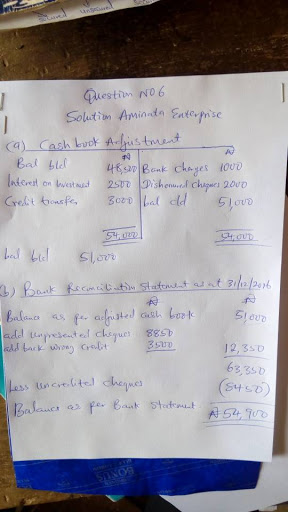 Question No 6
Solution Aminata Enterprise
(a) Cash book Adjustment
₦ ₦
Bal b/d 48,500 Bank charges 1000
Interest on Investment 2500 Dishonoured cheques 2000
Credit transfer 3000 bal c/d 51,000
54,000 54,000
bal b/d 51,000
b) Bank Reconciliation Statement as at 31/12/2016
₦ ₦
Balance as per adjusted cash book 51,000
add unpresented cheques 8850
add back wrong credit 3500
12,350
63,350
Less uncredited cheques (8450)
Balance as per Bank Statement ₦54,900